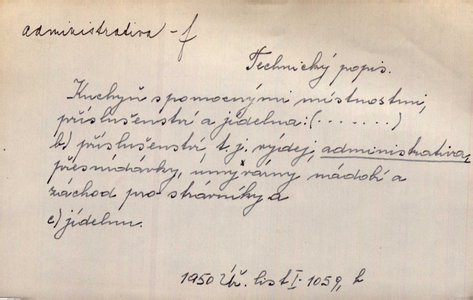 administrativa -f
Technický popis.
Kuchyň s pomocnými místnostmi,
příslušenství a jídelna: (.......)
b) příslušenství, t.j. výdej, administrativa,
přesnídávky, umývárny nádobí a
záchod pro strávníky a
c) jídelnu.
1950 Úř. list I. 1059, b